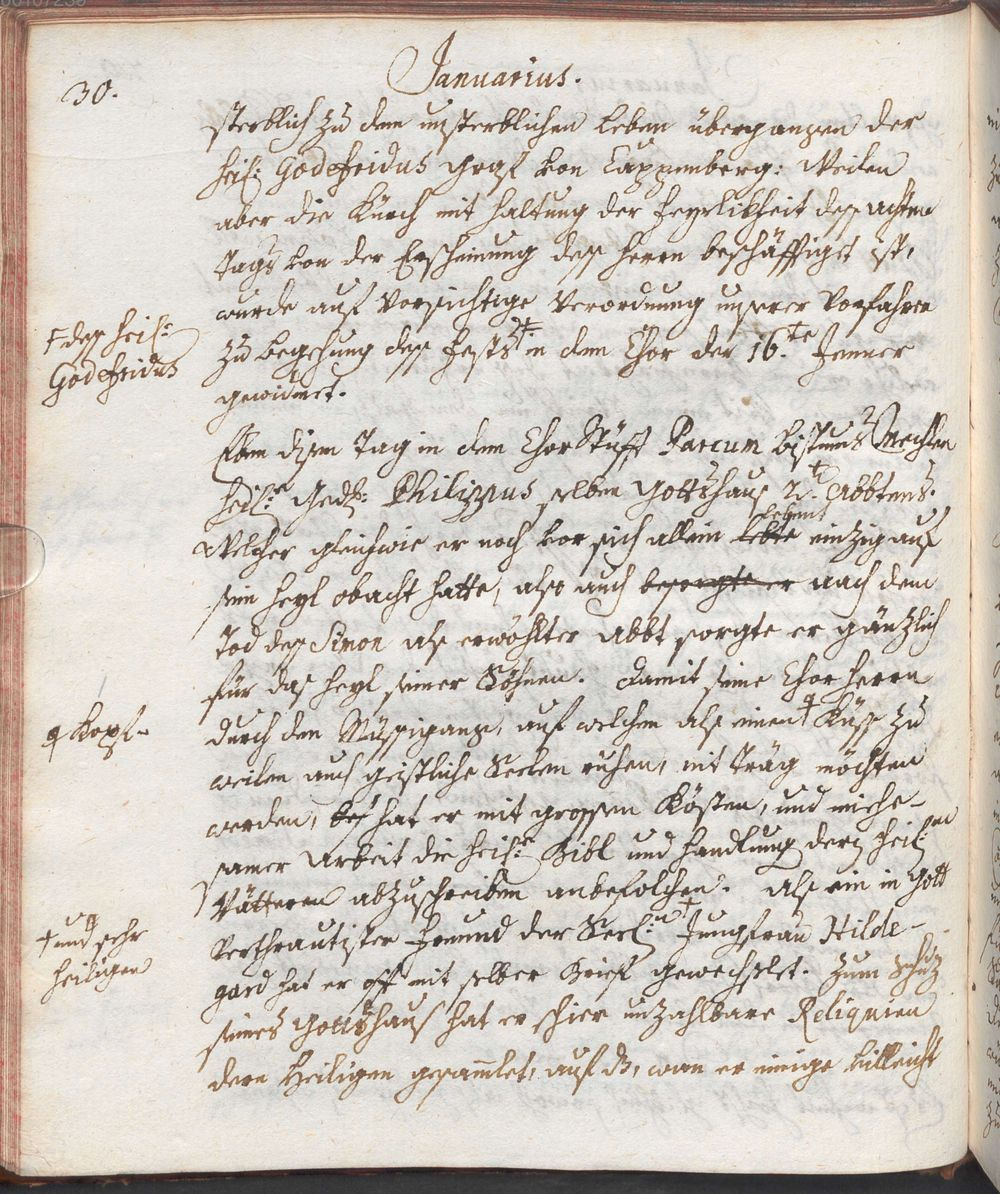 30.
Januarius.
sterblich zu dem unsterblichen Leben übergangen der
heil: Godefridus Graf von Cappenberg: Weilen
aber die Kürch mit haltung der Feyrlikheit dess achten
Tags von der Erscheinung dess Herrn beschäfftiget ist,
wurde auf Vorsichtige Verordnung unserer Vorfahren
zu begehung dess Fests † in dem Chor der 16.te Jenner
gewidmet.
† dess heil:
Godefridus
Eben disen Tag in dem Chorstüfft Parcum bistums Mechlen
Philippus selben Gottshaus 2.t Abbtens.
Welcher gleichwie er noch vor sich allein lebte lebent einzig auf
sein heyl obacht hatte, also auch besorgte er nach dem
Tod dess Simon als erwöhlter Abbt sorgte er gänzlich
für das heyl seiner Söhnen. Damit seine Chor herren
durch den Müssiggang, auf welchem als einen Küss zu
weilen auch geistliche Seelen ruhen, nit träg möchten
ꝗ Kopf-
werden, hat er mit grossen Kösten, und miehe-
samer Arbeit die heil:e Bibl und handlung deren heil:en
Vätteren abzuschreiben anbefolchen. Als ein in Gott
Verthrautister Freund der Seel: † Jungfrau Hilde-
† und sehr
heiligen
gard hat er oft mit selber Brief gewechslet. Zum Schuz
seines Gottshaus hat er schier unzahlbare Reliquien
deren Heiligen gesamlet, auf das, wan er einige villeicht